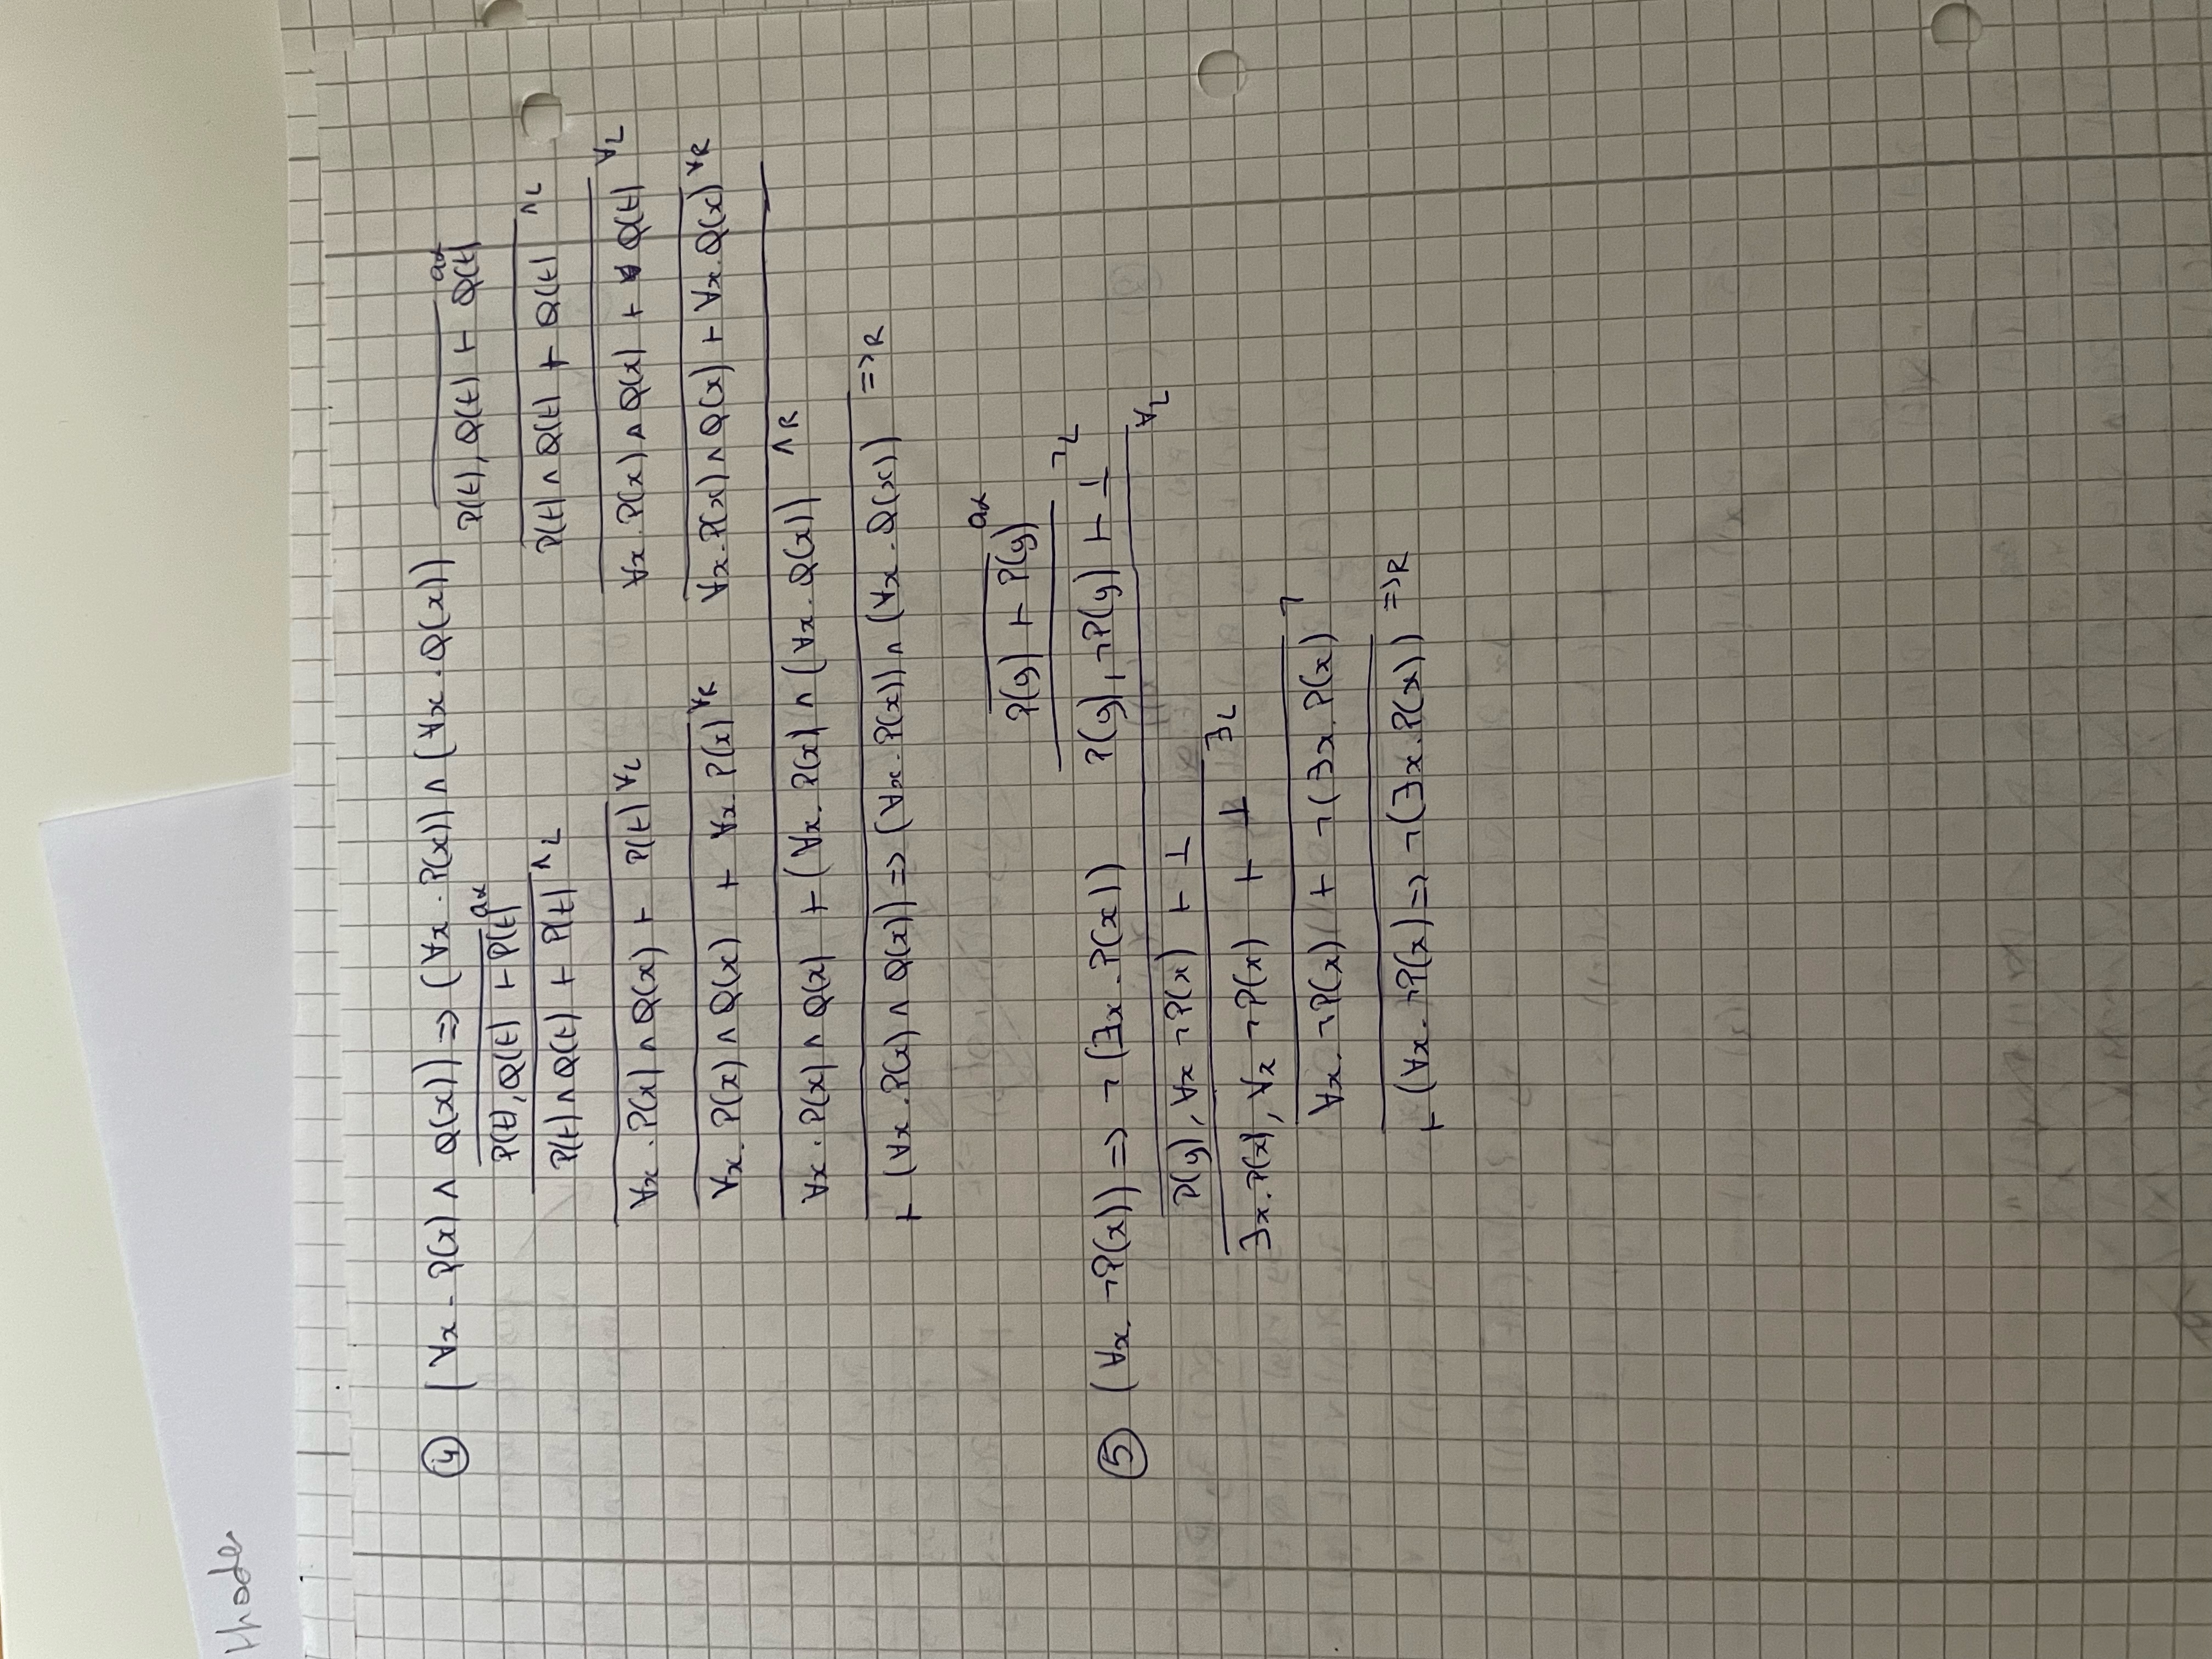 thodes
④ (∀x . P(x) ∧ Q(x)) => (∀x . P(x)) ∧ (∀x . Q(x))
ax
P(t), Q(t) ⊢ P(t)
∧L
P(t) ∧ Q(t) ⊢ P(t)
∀L
∀x . P(x) ∧ Q(x) ⊢ P(t)
∀R
∀x. P(x) ∧ Q(x) ⊢ ∀x. P(x)
ax
P(t), Q(t) ⊢ Q(t)
∧L
P(t) ∧ Q(t) ⊢ Q(t)
∀L
∀x . P(x) ∧ Q(x) ⊢ Q(t)
∀R
∀x. P(x) ∧ Q(x) ⊢ ∀x. Q(x)
∧R
∀x . P(x) ∧ Q(x) ⊢ (∀x. P(x) ∧ (∀x. Q(x))
=>R
⊢ (∀x . P(x) ∧ Q(x)) => (∀x . P(x)) ∧ (∀x . Q(x))
⑤ (∀x. ¬P(x)) => ¬(∃x . P(x))
ax
P(y) ⊢ P(y)
¬L
P(y), ¬P(y) ⊢ ⊥
∀L
P(y), ∀x ¬P(x) ⊢ ⊥
∃L
∃x. P(x), ∀x ¬P(x) ⊢ ⊥
¬
∀x. ¬P(x) ⊢ ¬(∃x. P(x)
=>R
⊢ (∀x. ¬P(x) => ¬(∃x . P(x))